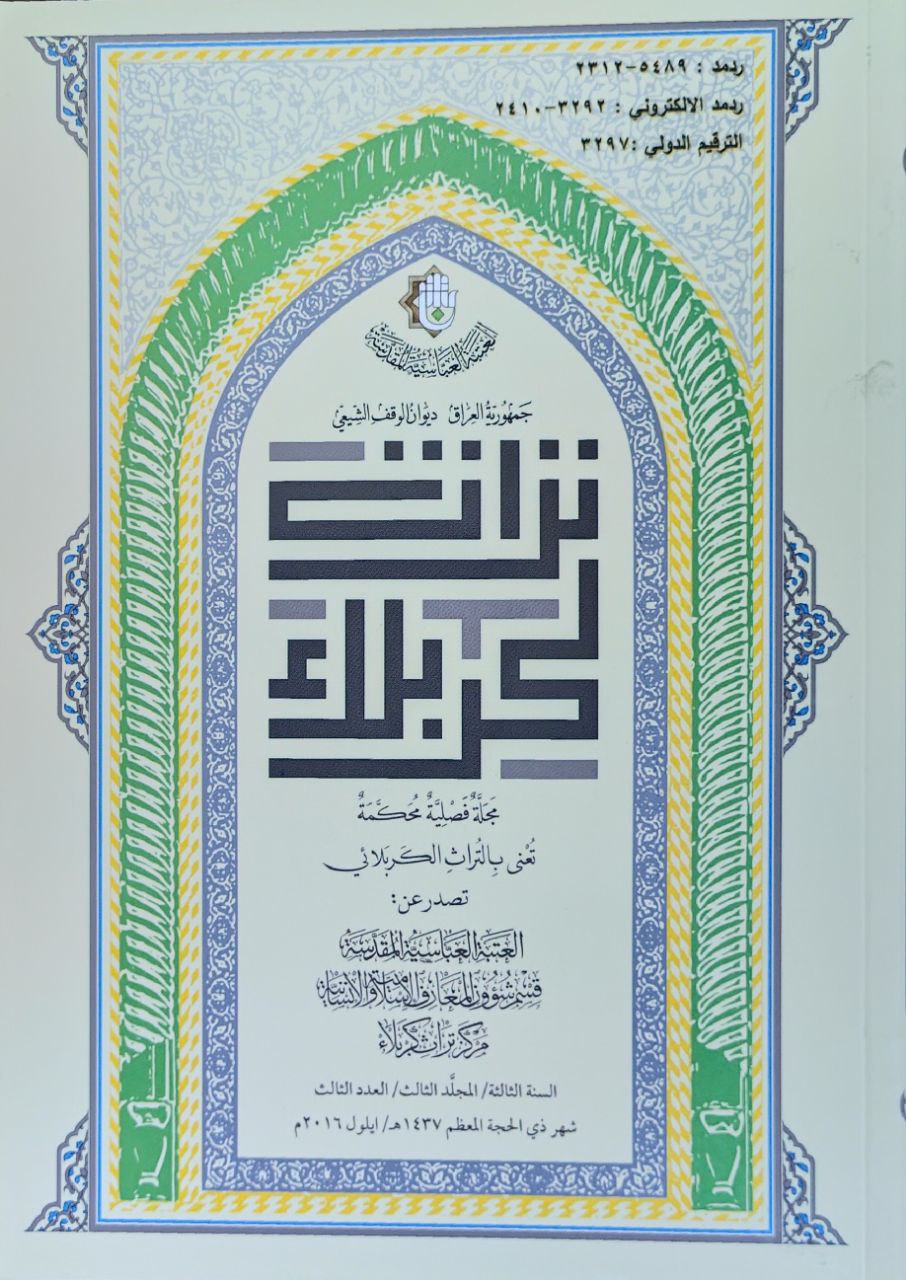 ردمد : ٥٤٨٩-٢٣١٢
ردمد الالكتروني : ٣٢٩٢-٢٤١٠
الترقيم الدولي :٣٢٩٧
العتبة العباسية المقدسة
جَمهُوريَّةُ العِراق ديوَانُ الوَقف الشِيعيّ
تراث
كربلاء
مَجَلَّةٌ فَصْلِيَّةٌ مُحَكَّمَةٌ
تُعْنى بِالتُراثِ الكَربَلائي
تصدر عن:
العتبة العباسية المقدسة
قسم شؤون المعارف الإسلامية والإنسانية
مركز تراث كربلاء
السنة الثالثة/ المجلَّد الثالث/ العدد الثالث
شهر ذي الحجة المعظم ١٤٣٧هـ/ ايلول ٢٠١٦م